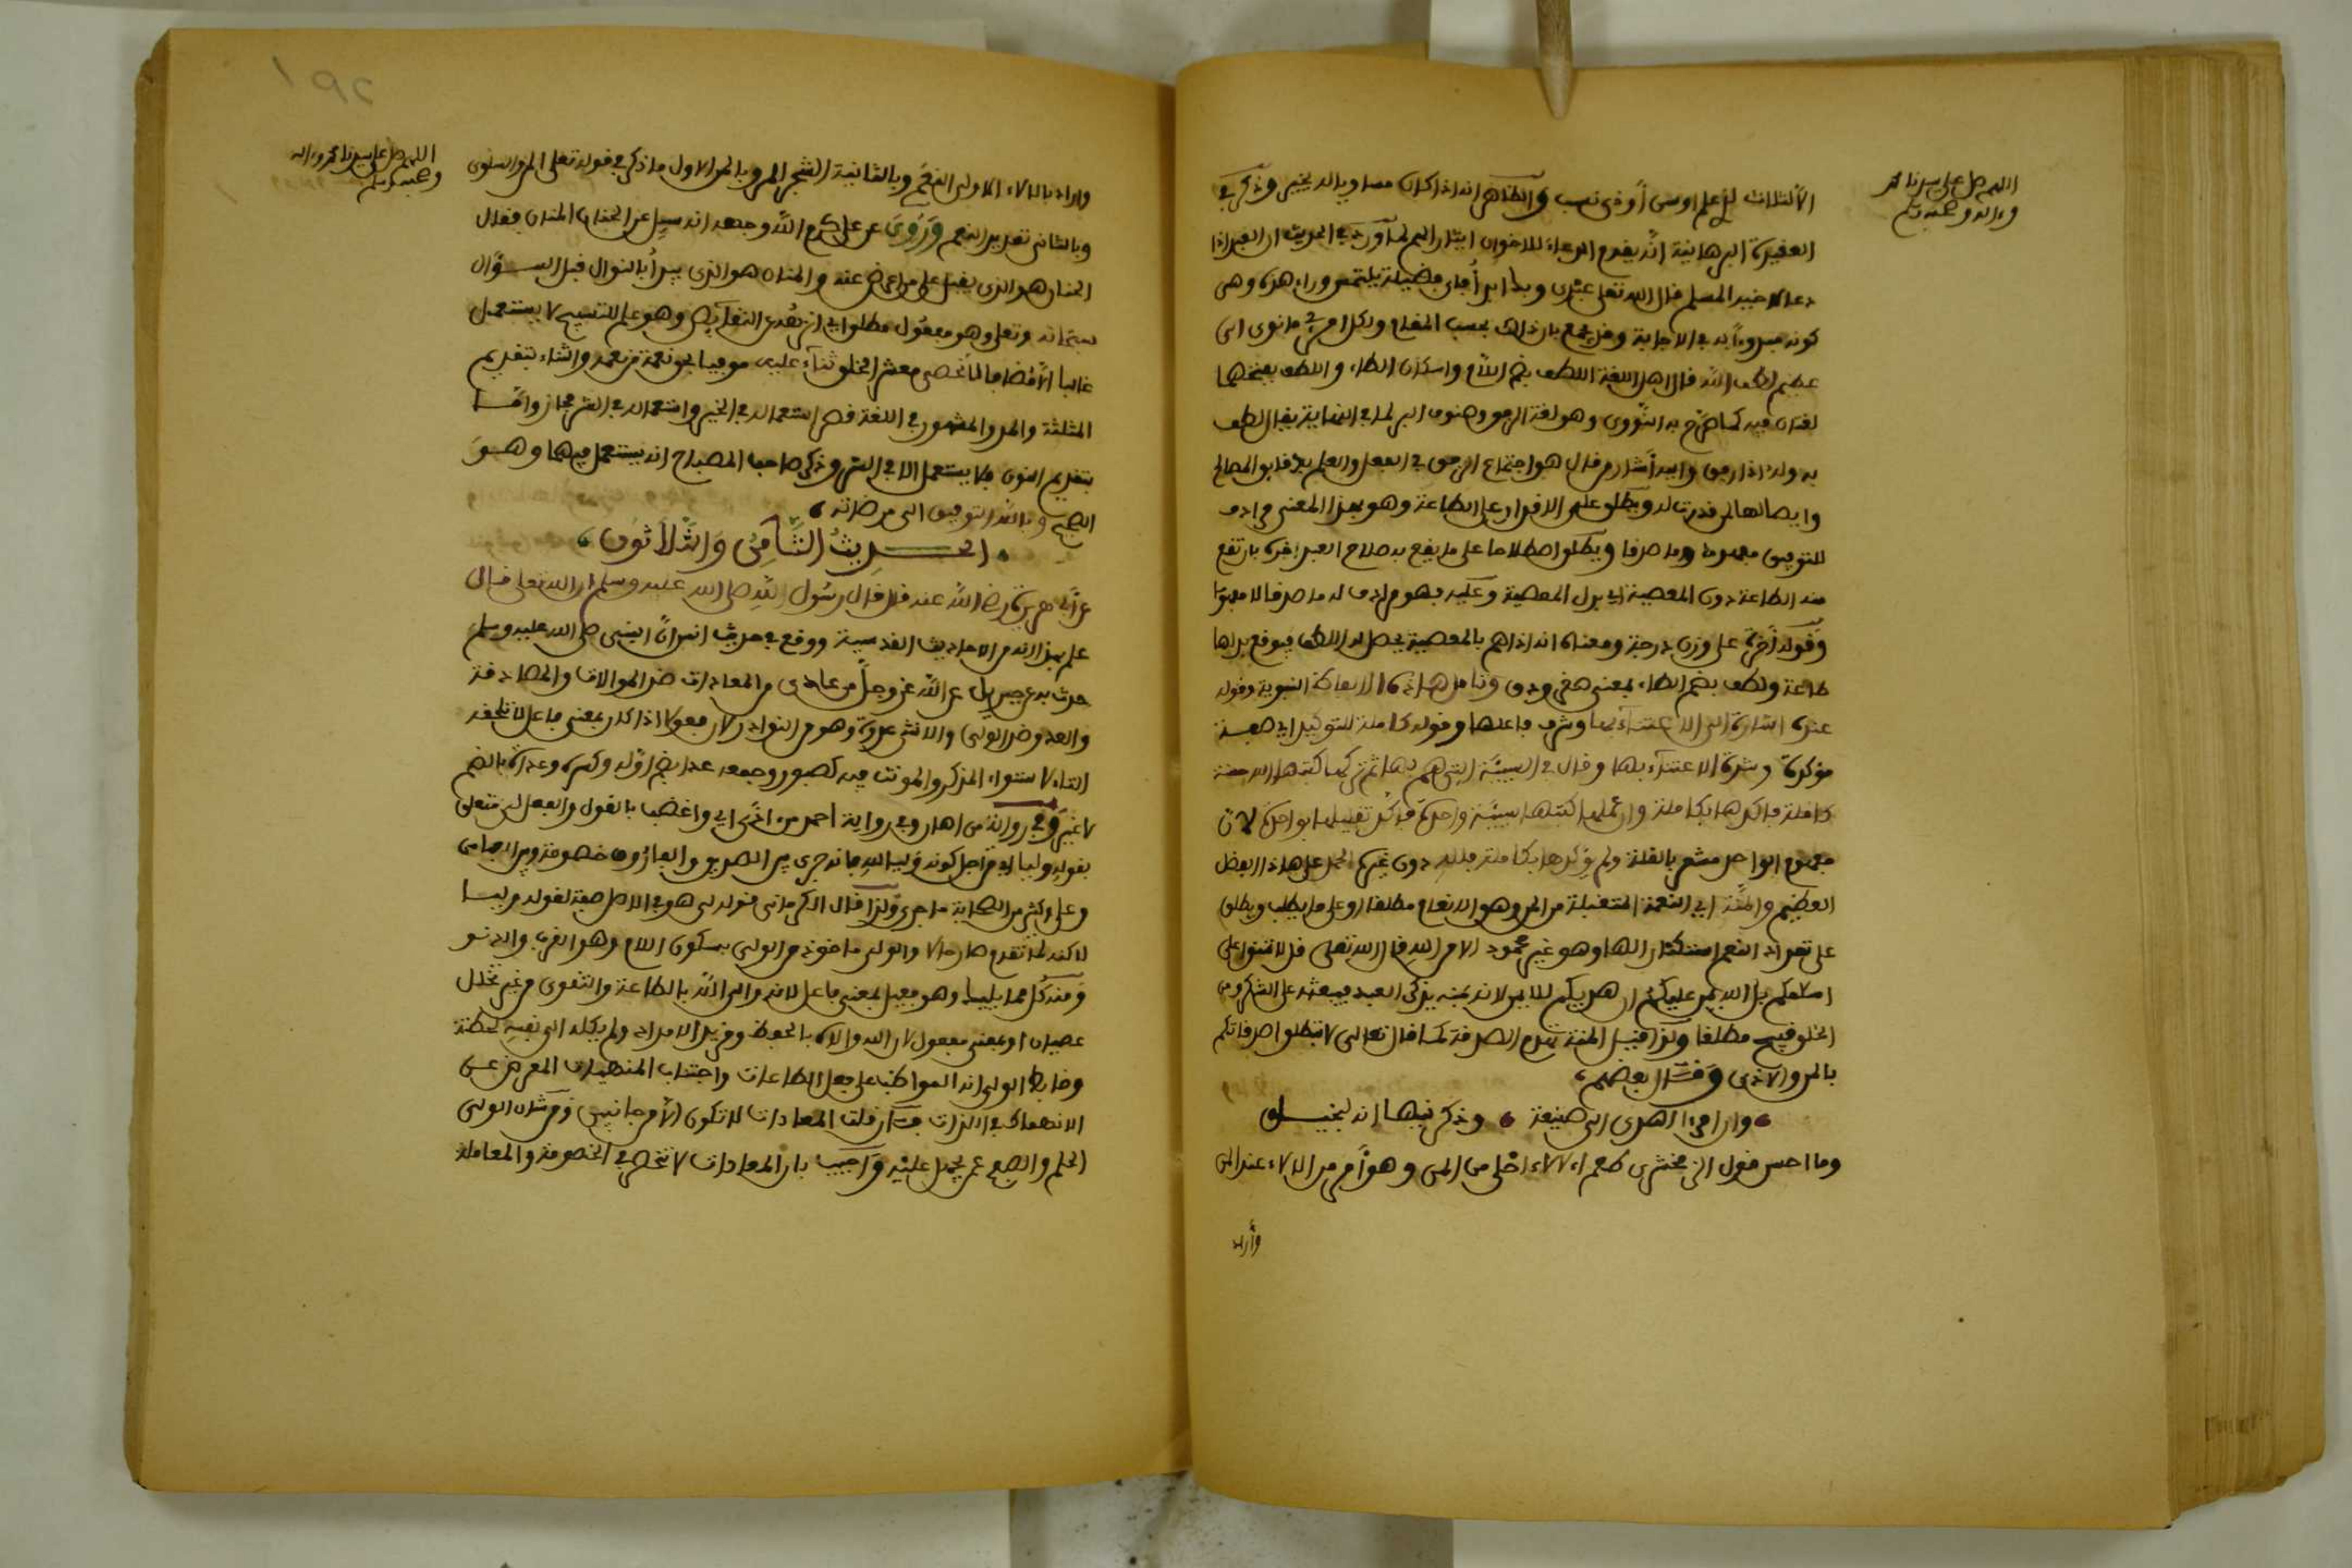 اللهم صل على سيدنا محمد
وءاله وصحبه وسلم
الالثلاث لذي علم اوسن أو ذي نسب والظاهر انه اذا كان مساويا له يخير وذكر في
العقيدة البرهانية انه يقدم الدعاء للاخوان ايثارا لهم لما ورد في الحديث ان العبد اذا
دعا لاخيه المسلم قال الله تعلى عبدي وبك ابدأ فاي فضيلة يلتمس وراء هذه وهي
كونه مبدوءا به في الاجابة وقد يجمع بان ذلك بحسب المقام ولكل امرئ ما نوى الى
عظيم لطف الله قال اهل اللغة اللطف بضم اللام واسكان الطاء واللطف بفتحهما
لغتان فيه كما صرح به النووي وهو لغة الرفق وصنوف البر لما في النهاية يقال لطف
به وله اذا رفق واليه أشار من قال هو اجتماع الرفق في الفعل والعلم بدقايق المصالح
وايصالها لمن قدرت له ويطلق على الاقدار على الطاعة وهو بهذا المعنى مرادف
للتوفيق مفهوما وما صدقا ويطلق اصطلاحا على ما يقع به صلاح العبد اخرة بان تقع
منه الطاعة دون المعصية اي بدل المعصية وعليه فهو مرادف له ما صدقا لا مفهوما
وقوله أخرة على وزن درجة ومعناه انه اذا هم بالمعصية يحصل له اللطف فيوقع بدلها
طاعة ولطف بضم الطاء بمعنى صغر ودق وتامل هذه الالفاظ النبوية وقوله
عنده اشارة الى الاعتناء بها وشرف فاعلها وقوله كاملة للتوكيد اي صفة
مؤكدة وشدة الاعتناء بها وقال في السيئة التي هم بها ثم تركها كتبها الله حسنة
كاملة فاكدها بكاملة وان عملها كتبها سيئة واحدة فاكد تقليلها بواحدة لان
مفهوم الواحد مشعر بالقلة ولم يؤكدها بكاملة فلله دون غيره الحمد على هذا الفضل
العظيم والمنة اي النعمة المتفضلة من المن وهو الانعام مطلقا او على ما يطلب ويطلق
على تعداد النعم استكثارا لها وهو غير محمود الا من الله قال الله تعلى قل لا تمنوا علي
اسلامكم بل الله يمن عليكم ان هديكم للايمن لانه بمنه يذكر العبد فيبعثه على الشكر ومن
المخلوقين مطلقا ولذا قيل المنة تهدم الصدقة كما قال تعالى لا تبطلوا صدقاتكم
بالمن والاذى وقال بعضهم،
وان امرءا اهدى الي صنيعة وذكرنيها انه لبخيل
وما احسن قول الزمخشري طعم الالاء احلى من المن وهو أمر من الالاء عند المن
وأراد
اللهم صل على سيدنا محمد وءاله
وصحبه وسلم
واراد بالالاء الاولى النعم وبالثانية الشجر المر وبالمن الاول ما ذكر في قوله تعلى المن والسلوى
وبالثاني تعديد النعم وروي عن علي كرم الله وجهه انه سيل عن الحنان المنان فقال
الحنان هو الذي يقبل على من اعرض عنه والمنان هو الذي يبدأ بالنوال قبل السؤال
سبحانه وتعلى وهو مفعول مطلق اي انزهه عن النقايص وهو علم للتسبيح لا يستعمل
غالبا الا مضافا لا نحصي معشر الخلق ثناء عليه موفيا بحق نعمة من نعمه والثناء بتقديم
المثلثة والمد والمشهور في اللغة قصر استعماله في الخير واستعماله في الشر مجاز واما
بتقديم النون فلا يستعمل الا في الشر وذكر صاحب المصباح انه يستعمل فيهما وهو
الصحيح وبالله التوفيق الى مرضاته،
الحديث الثامن والثلاثون،
عن أبي هريرة رضي الله عنه قال قال رسول الله صلى الله عليه وسلم ان الله تعلى قال
علم بهذا انه من الاحاديث القدسية ووقع في حديث انس ان النبي صلى الله عليه وسلم
حدث به عن جبريل عن الله عز وجل من عادى من المعادات ضد الموالات والمصادقة
والعدو ضد الولي والانثى عدوة وهو من النوادر لان فعولا اذا كان بمعنى فاعل لا تلحقه
التاء لاستواء المذكر والمونث فيه كصبور وجمعه عدا بضم اوله وكسره وعداة بالضم
لا غير وفي رواية من اهان وفي رواية احمد من اذى اي واغضب بالقول والفعل لي متعلق
بقوله وليا اي من اجل كونه وليا لله فانه جرى بين الصديق والفاروق خصومة وبين العباس
وعلي وكثير من الصحابة ما جرى ولذا قال الكرماني قوله لي هو في الاصل صفة لقوله وليا
لاكنه لما تقدم صار حالا والولي ماخوذ من الولي بسكون اللام وهو القرب والدنو
ومنه كل مما يليك وهو فعيل بمعنى فاعل لانه والى الله بالطاعة والتقوى من غير تخلل
عصيان او بمعنى مفعول لان الله والاه بالحفظ ومزيد الامداد ولم يكله الى نفسه لحظة
وضابط الولي انه المواظب على فعل الطاعات واجتناب المنهيات المعرض عن
الانهماك في اللذات فان قلت المعادات لا تكون الا من جانبين ومن شان الولي
الحلم والصفح عمن يجهل عليه واجيب بان المعادات لا تنحصر في الخصومة والمعاملة